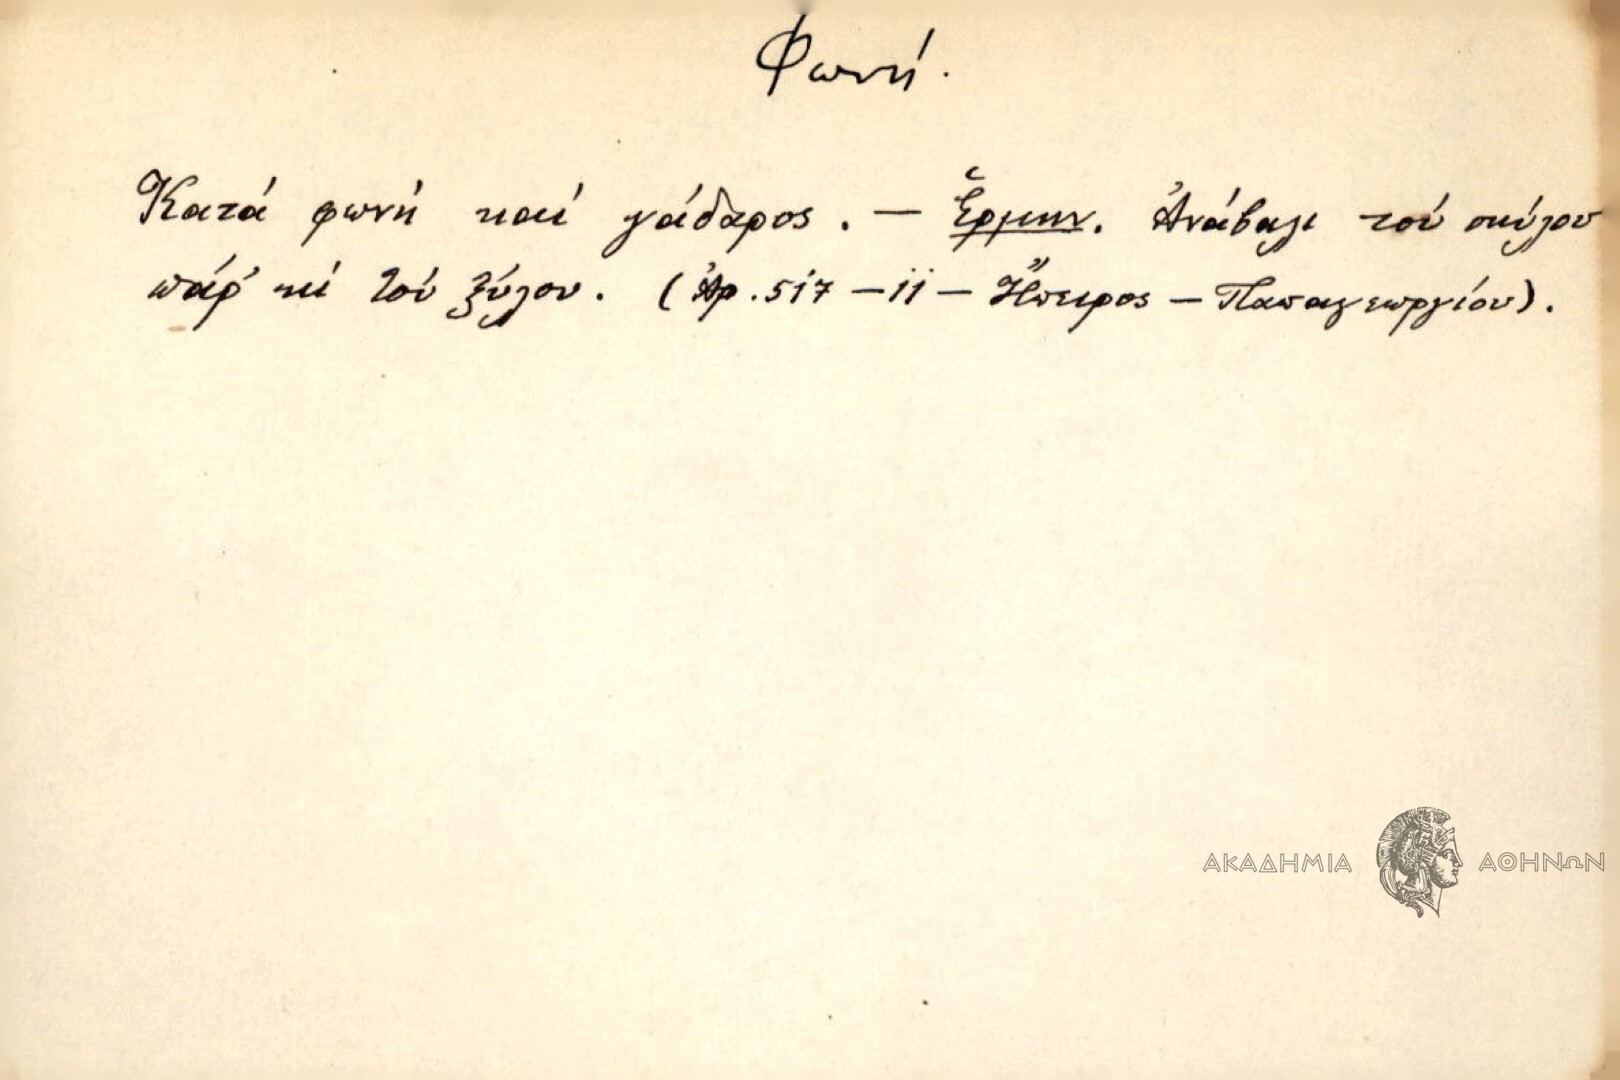 Φωνή.
Κατά φωνή καί γάδαρος. — Ἑρμην. Ἀνάβαλι τού σκύλου
πάρ' κί τού ξύλου. (Ἀρ. 517 — 11 — Ἤπειρος — Παπαγεωργίου).
ΑΚΑΔΗΜΙΑ ΑΘΗΝΩΝ